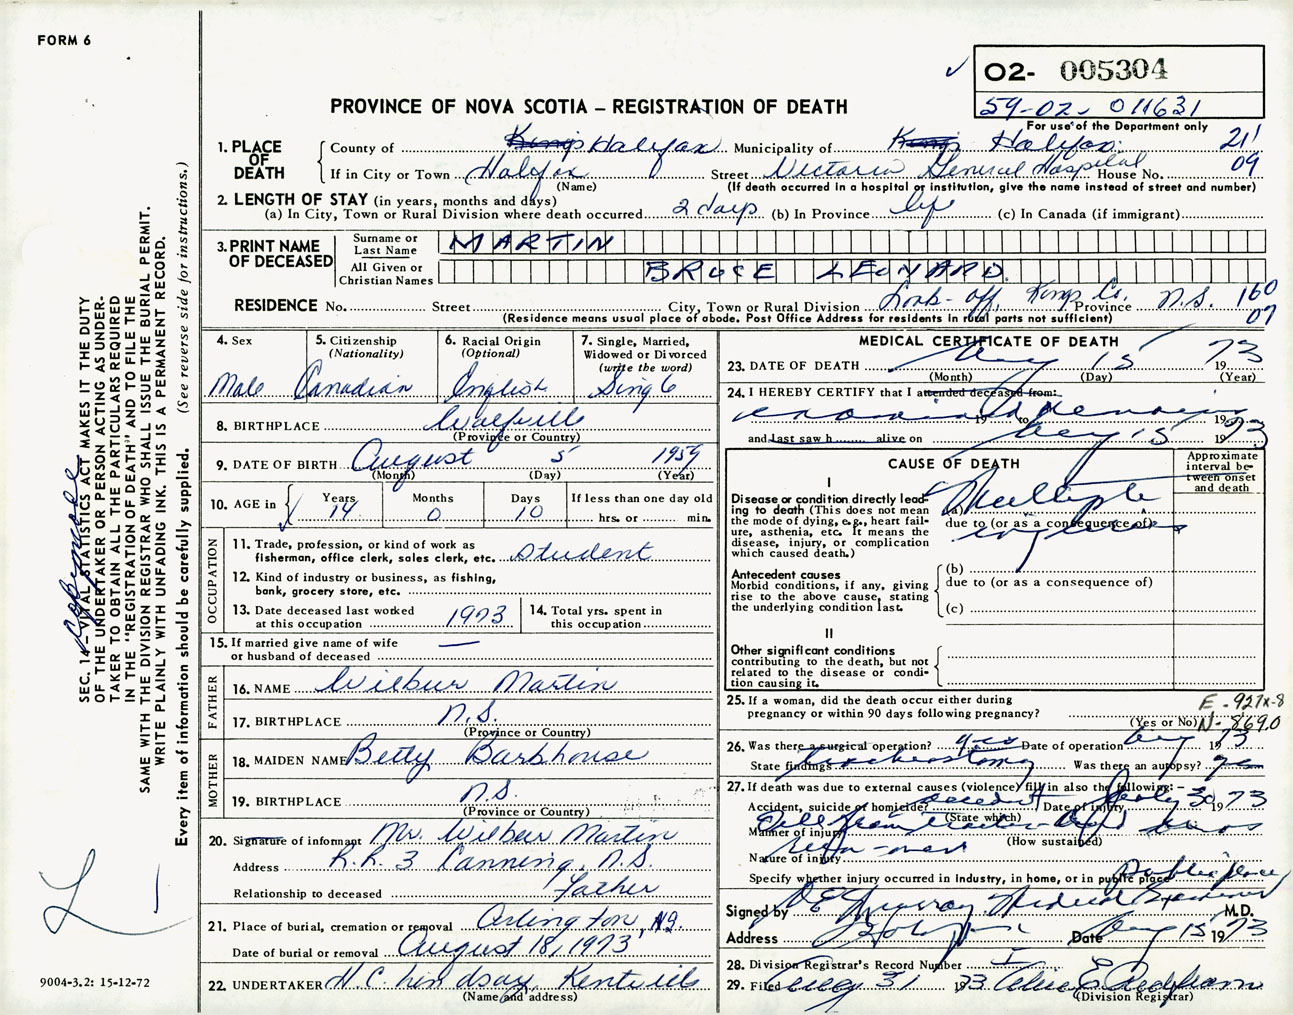 FORM 6
02- 005304
59-02- 011631
For use of the Department only
PROVINCE OF NOVA SCOTIA – REGISTRATION OF DEATH
1. PLACE OF DEATH
County of Kings Halifax Municipality of Kings Halifax 21
If in City or Town Halifax Street Victoria General Hospital House No. 09
(Name) (If death occurred in a hospital or institution, give the name instead of street and number)
2. LENGTH OF STAY (in years, months and days)
(a) In City, Town or Rural Division where death occurred 2 days (b) In Province life (c) In Canada (if immigrant)
3. PRINT NAME OF DECEASED
Surname or Last Name MARTIN
All Given or Christian Names BRUCE LEONARD
RESIDENCE No. Street City, Town or Rural Division Look-off, Kings Co. Province N.S. 160
(Residence means usual place of abode. Post Office Address for residents in rural parts not sufficient) 07
4. Sex 5. Citizenship (Nationality) 6. Racial Origin (Optional) 7. Single, Married, Widowed or Divorced (write the word)
Male Canadian English Single
8. BIRTHPLACE Wolfville
(Province or Country)
9. DATE OF BIRTH August 5 1959
(Month) (Day) (Year)
10. AGE in Years Months Days If less than one day old
14 0 10 hrs. or min.
OCCUPATION
11. Trade, profession, or kind of work as
fisherman, office clerk, sales clerk, etc. Student
12. Kind of industry or business, as fishing,
bank, grocery store, etc.
13. Date deceased last worked at this occupation 1973 14. Total yrs. spent in this occupation
15. If married give name of wife —
or husband of deceased
FATHER
16. NAME Wilbur Martin
17. BIRTHPLACE N.S.
(Province or Country)
MOTHER
18. MAIDEN NAME Betty Barkhouse
19. BIRTHPLACE N.S.
(Province or Country)
20. Signature of informant Mr. Wilbur Martin
Address R.R. 3 Canning, N.S.
Relationship to deceased Father
21. Place of burial, cremation or removal Arlington, N.S.
Date of burial or removal August 18, 1973
22. UNDERTAKER H.C. Lindsay, Kentville
(Name and address)
MEDICAL CERTIFICATE OF DEATH
23. DATE OF DEATH Aug 15 1973
(Month) (Day) (Year)
24. I HEREBY CERTIFY that I attended deceased from:
examined remains 19 to 19
and last saw h alive on Aug 15 1973
CAUSE OF DEATH
Approximate interval between onset and death
I
Disease or condition directly leading to death (This does not mean the mode of dying, e.g., heart failure, asthenia, etc. It means the disease, injury, or complication which caused death.)
(a) Multiple
due to (or as a consequence of)
injuries
Antecedent causes
Morbid conditions, if any, giving rise to the above cause, stating the underlying condition last.
(b)
due to (or as a consequence of)
(c)
II
Other significant conditions
contributing to the death, but not related to the disease or condition causing it.
25. If a woman, did the death occur either during
pregnancy or within 90 days following pregnancy?
(Yes or No)
E - 927x-8
N - 8690
26. Was there a surgical operation? yes Date of operation Aug 1973
State findings tracheostomy Was there an autopsy? yes
27. If death was due to external causes (violence) fill in also the following: –
Accident, suicide or homicide? accident Date of injury July 30 1973
(State which)
Manner of injury Fell from tractor and was
(How sustained)
Nature of injury run-over
Specify whether injury occurred in industry, in home, or in public place Public place
Signed by D E Murray Medical Examiner M.D.
Address Halifax Date Aug 15 1973
28. Division Registrar's Record Number
29. Filed Aug 31 1973
(Division Registrar)
SEC. 14 – VITAL STATISTICS ACT MAKES IT THE DUTY
OF THE UNDERTAKER OR PERSON ACTING AS UNDER-
TAKER TO OBTAIN ALL THE PARTICULARS REQUIRED
IN THE "REGISTRATION OF DEATH" AND TO FILE THE
SAME WITH THE DIVISION REGISTRAR WHO SHALL ISSUE THE BURIAL PERMIT.
WRITE PLAINLY WITH UNFADING INK. THIS IS A PERMANENT RECORD.
Every item of information should be carefully supplied. (See reverse side for instructions.)
9004-3.2: 15-12-72